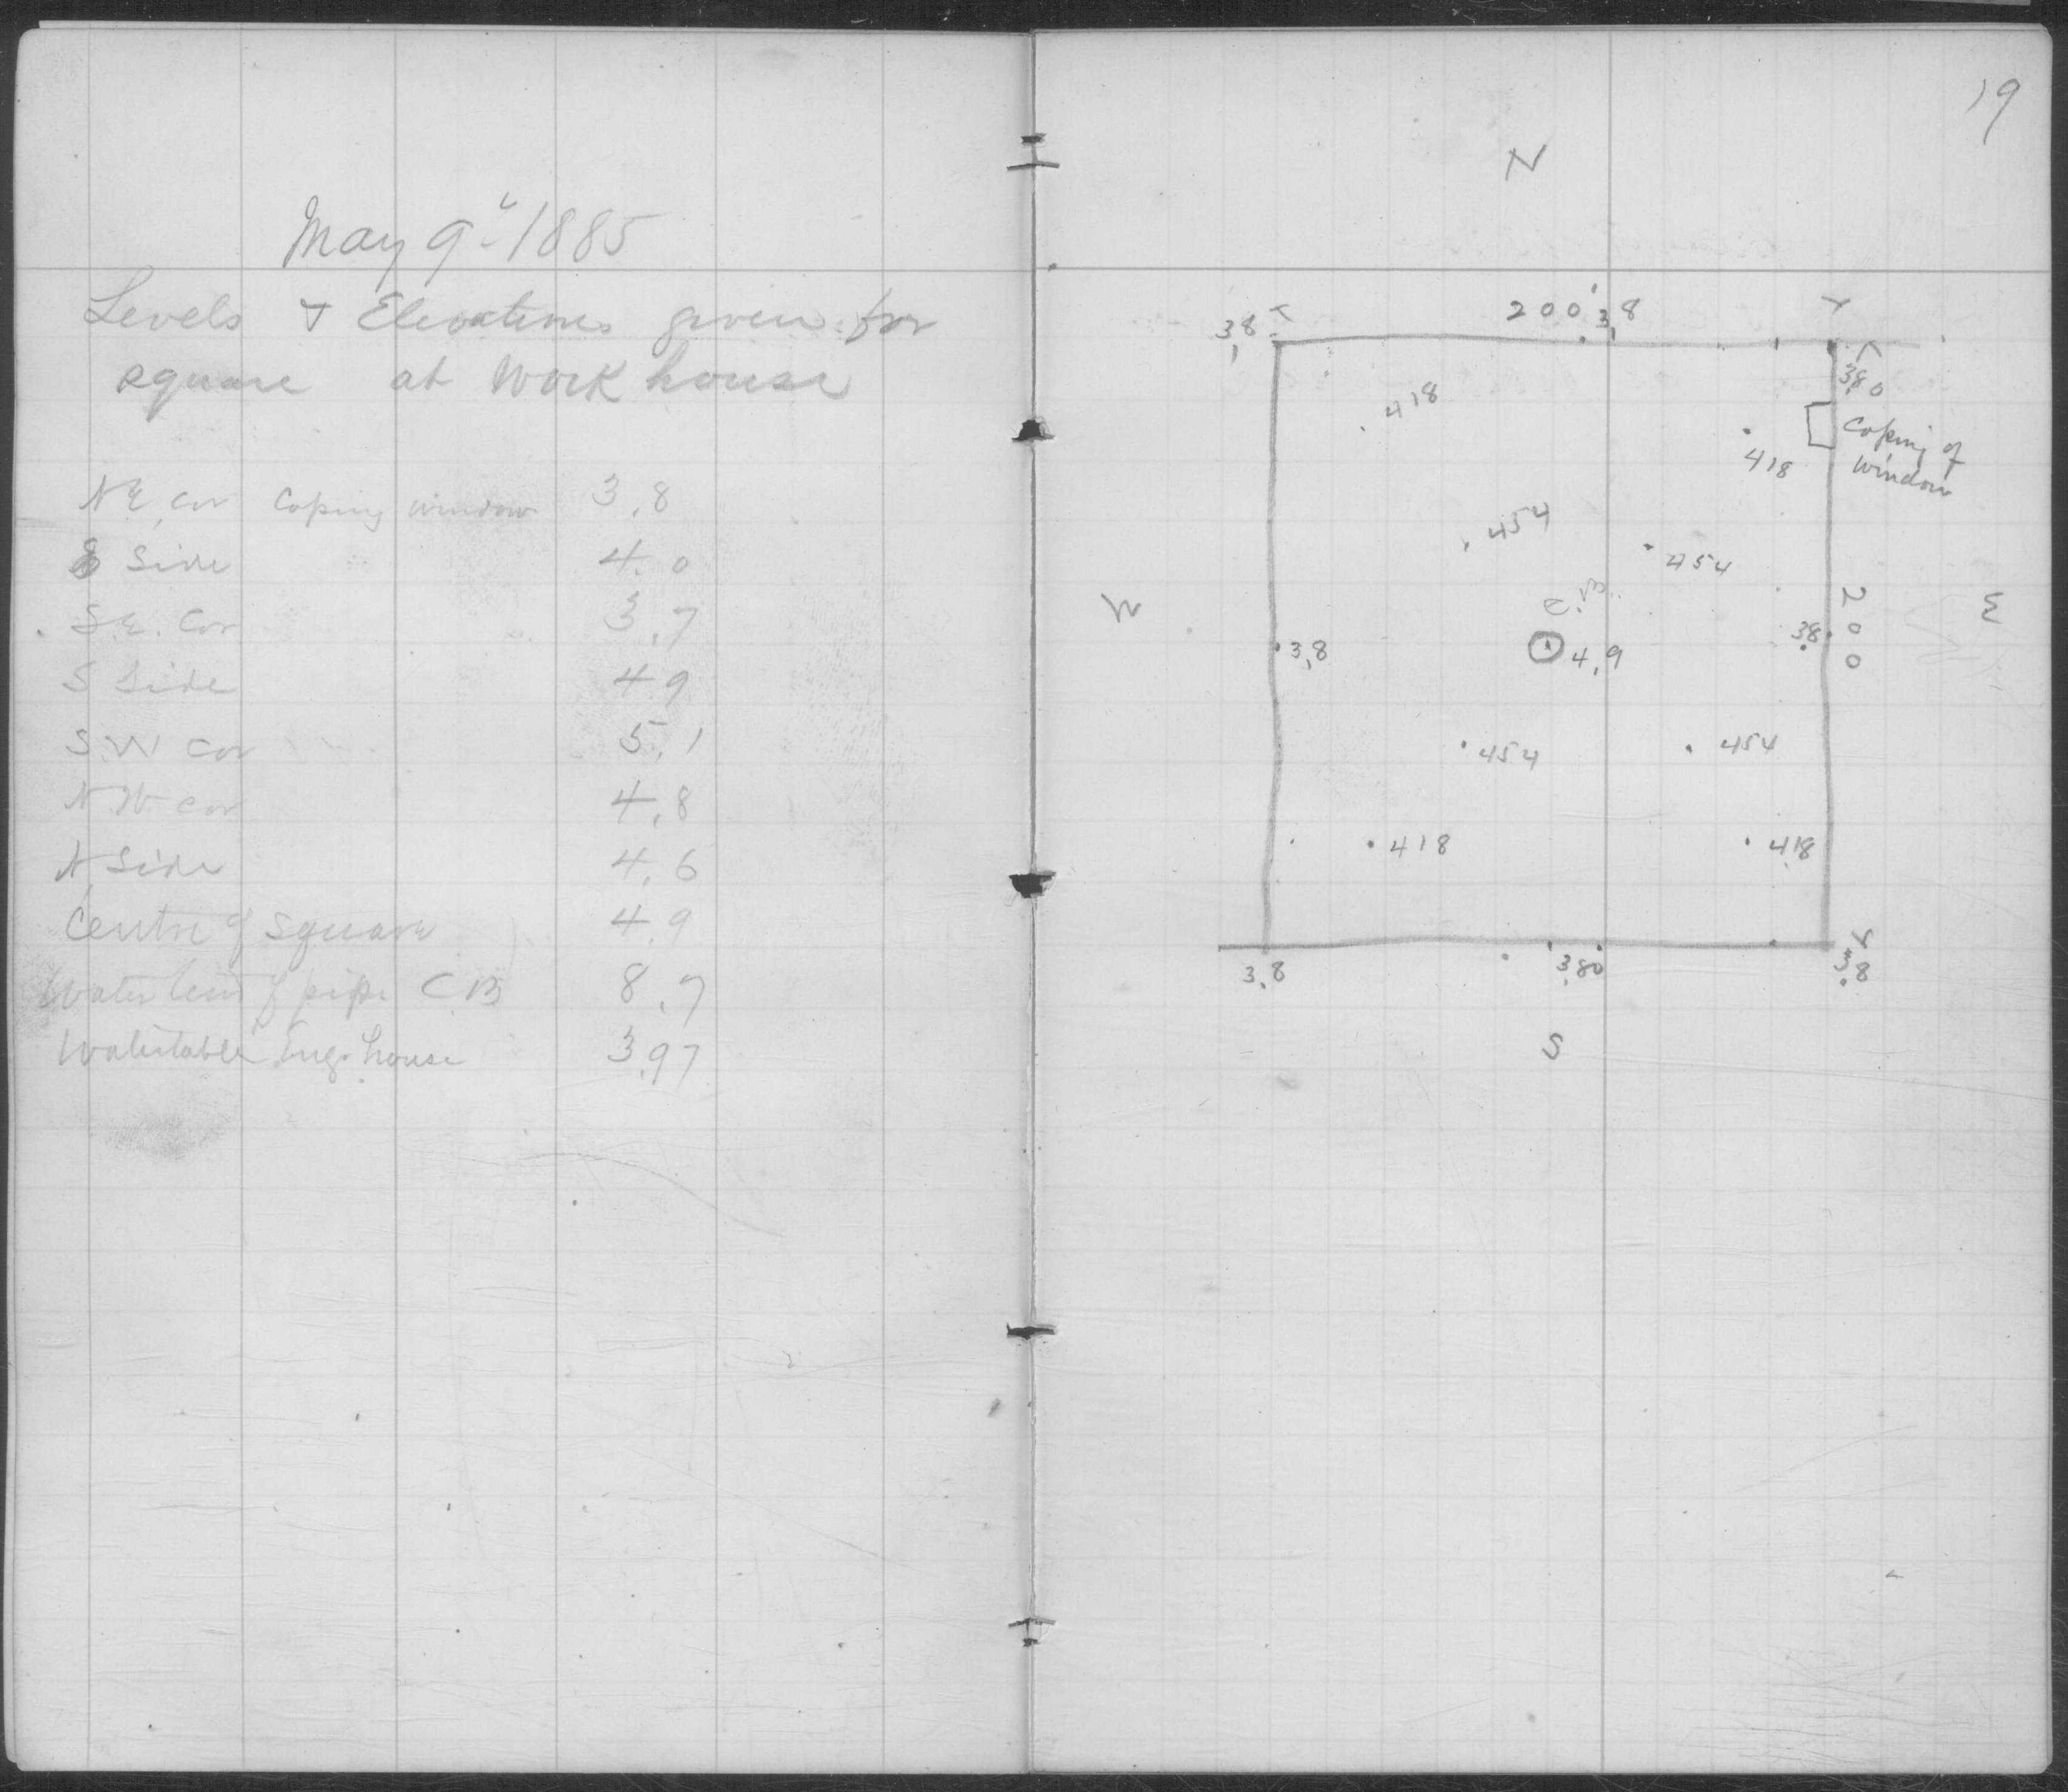 May 9" 1885
Levels & Elevations given for
square at Work house
N.E. cor Coping window 3.8
Side 4.0
S.E. Cor 3.7
S Side 4.9
S.W cor 5.1
N W. cor 4.8
N. Side 4.6
Centre of Square 4.9
Water of pipe C B 8.7
Watertable Eng. house 3.97
19
N
200' 3.8
3.8
3.80
418
Coping of
window
418
454
454
C.B.
W
E
200
3.8
4.9
3.8
454
454
418
418
3.8
3.80
3.8
S